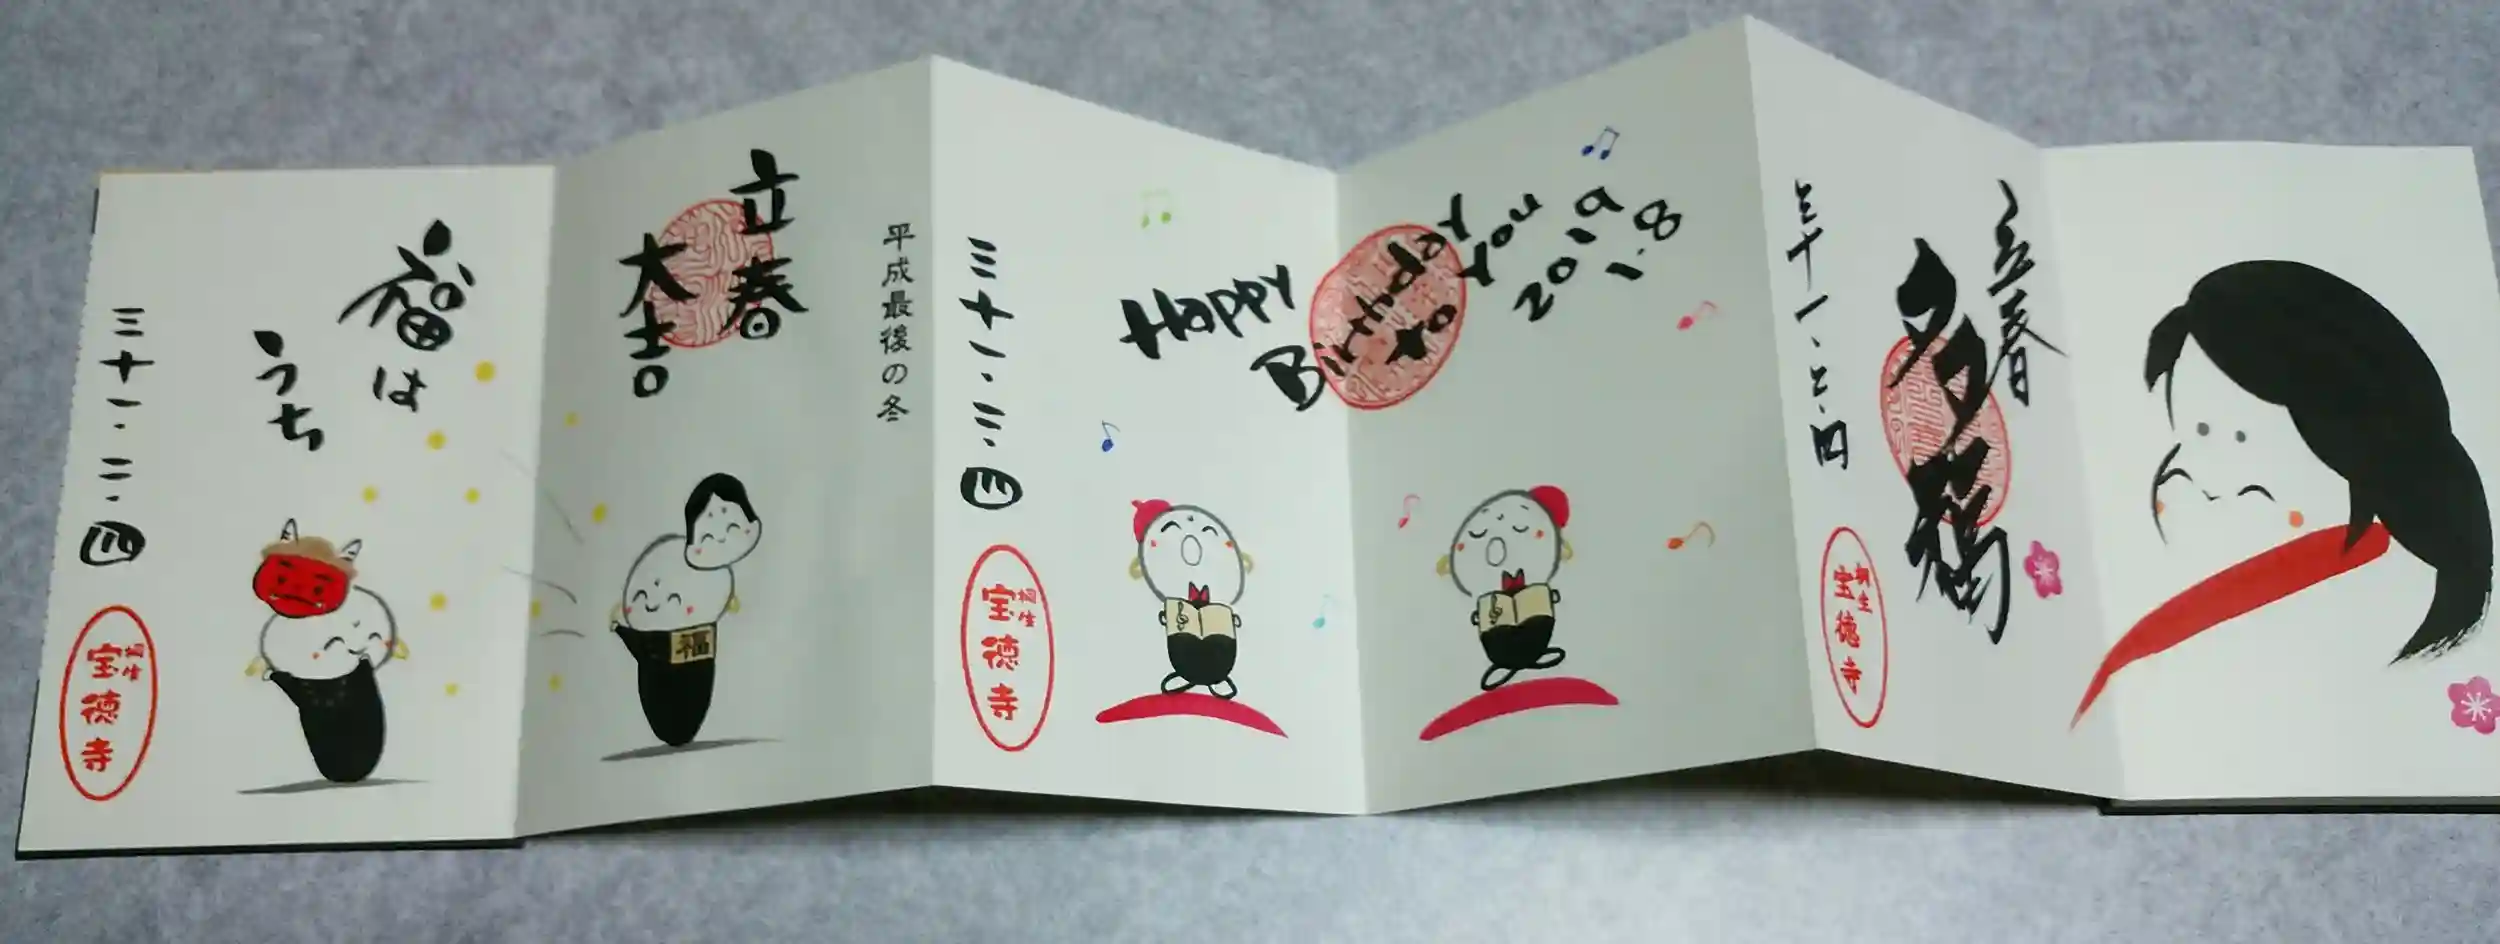 平成最後の冬
立春
大吉
福
福は
うち
三十一・二・四
桐生
宝徳寺
Happy
Birthday
to You
2019
1.8
三十一・二・四
桐生
宝徳寺
立春
多福
三十一・二・四
桐生
宝徳寺